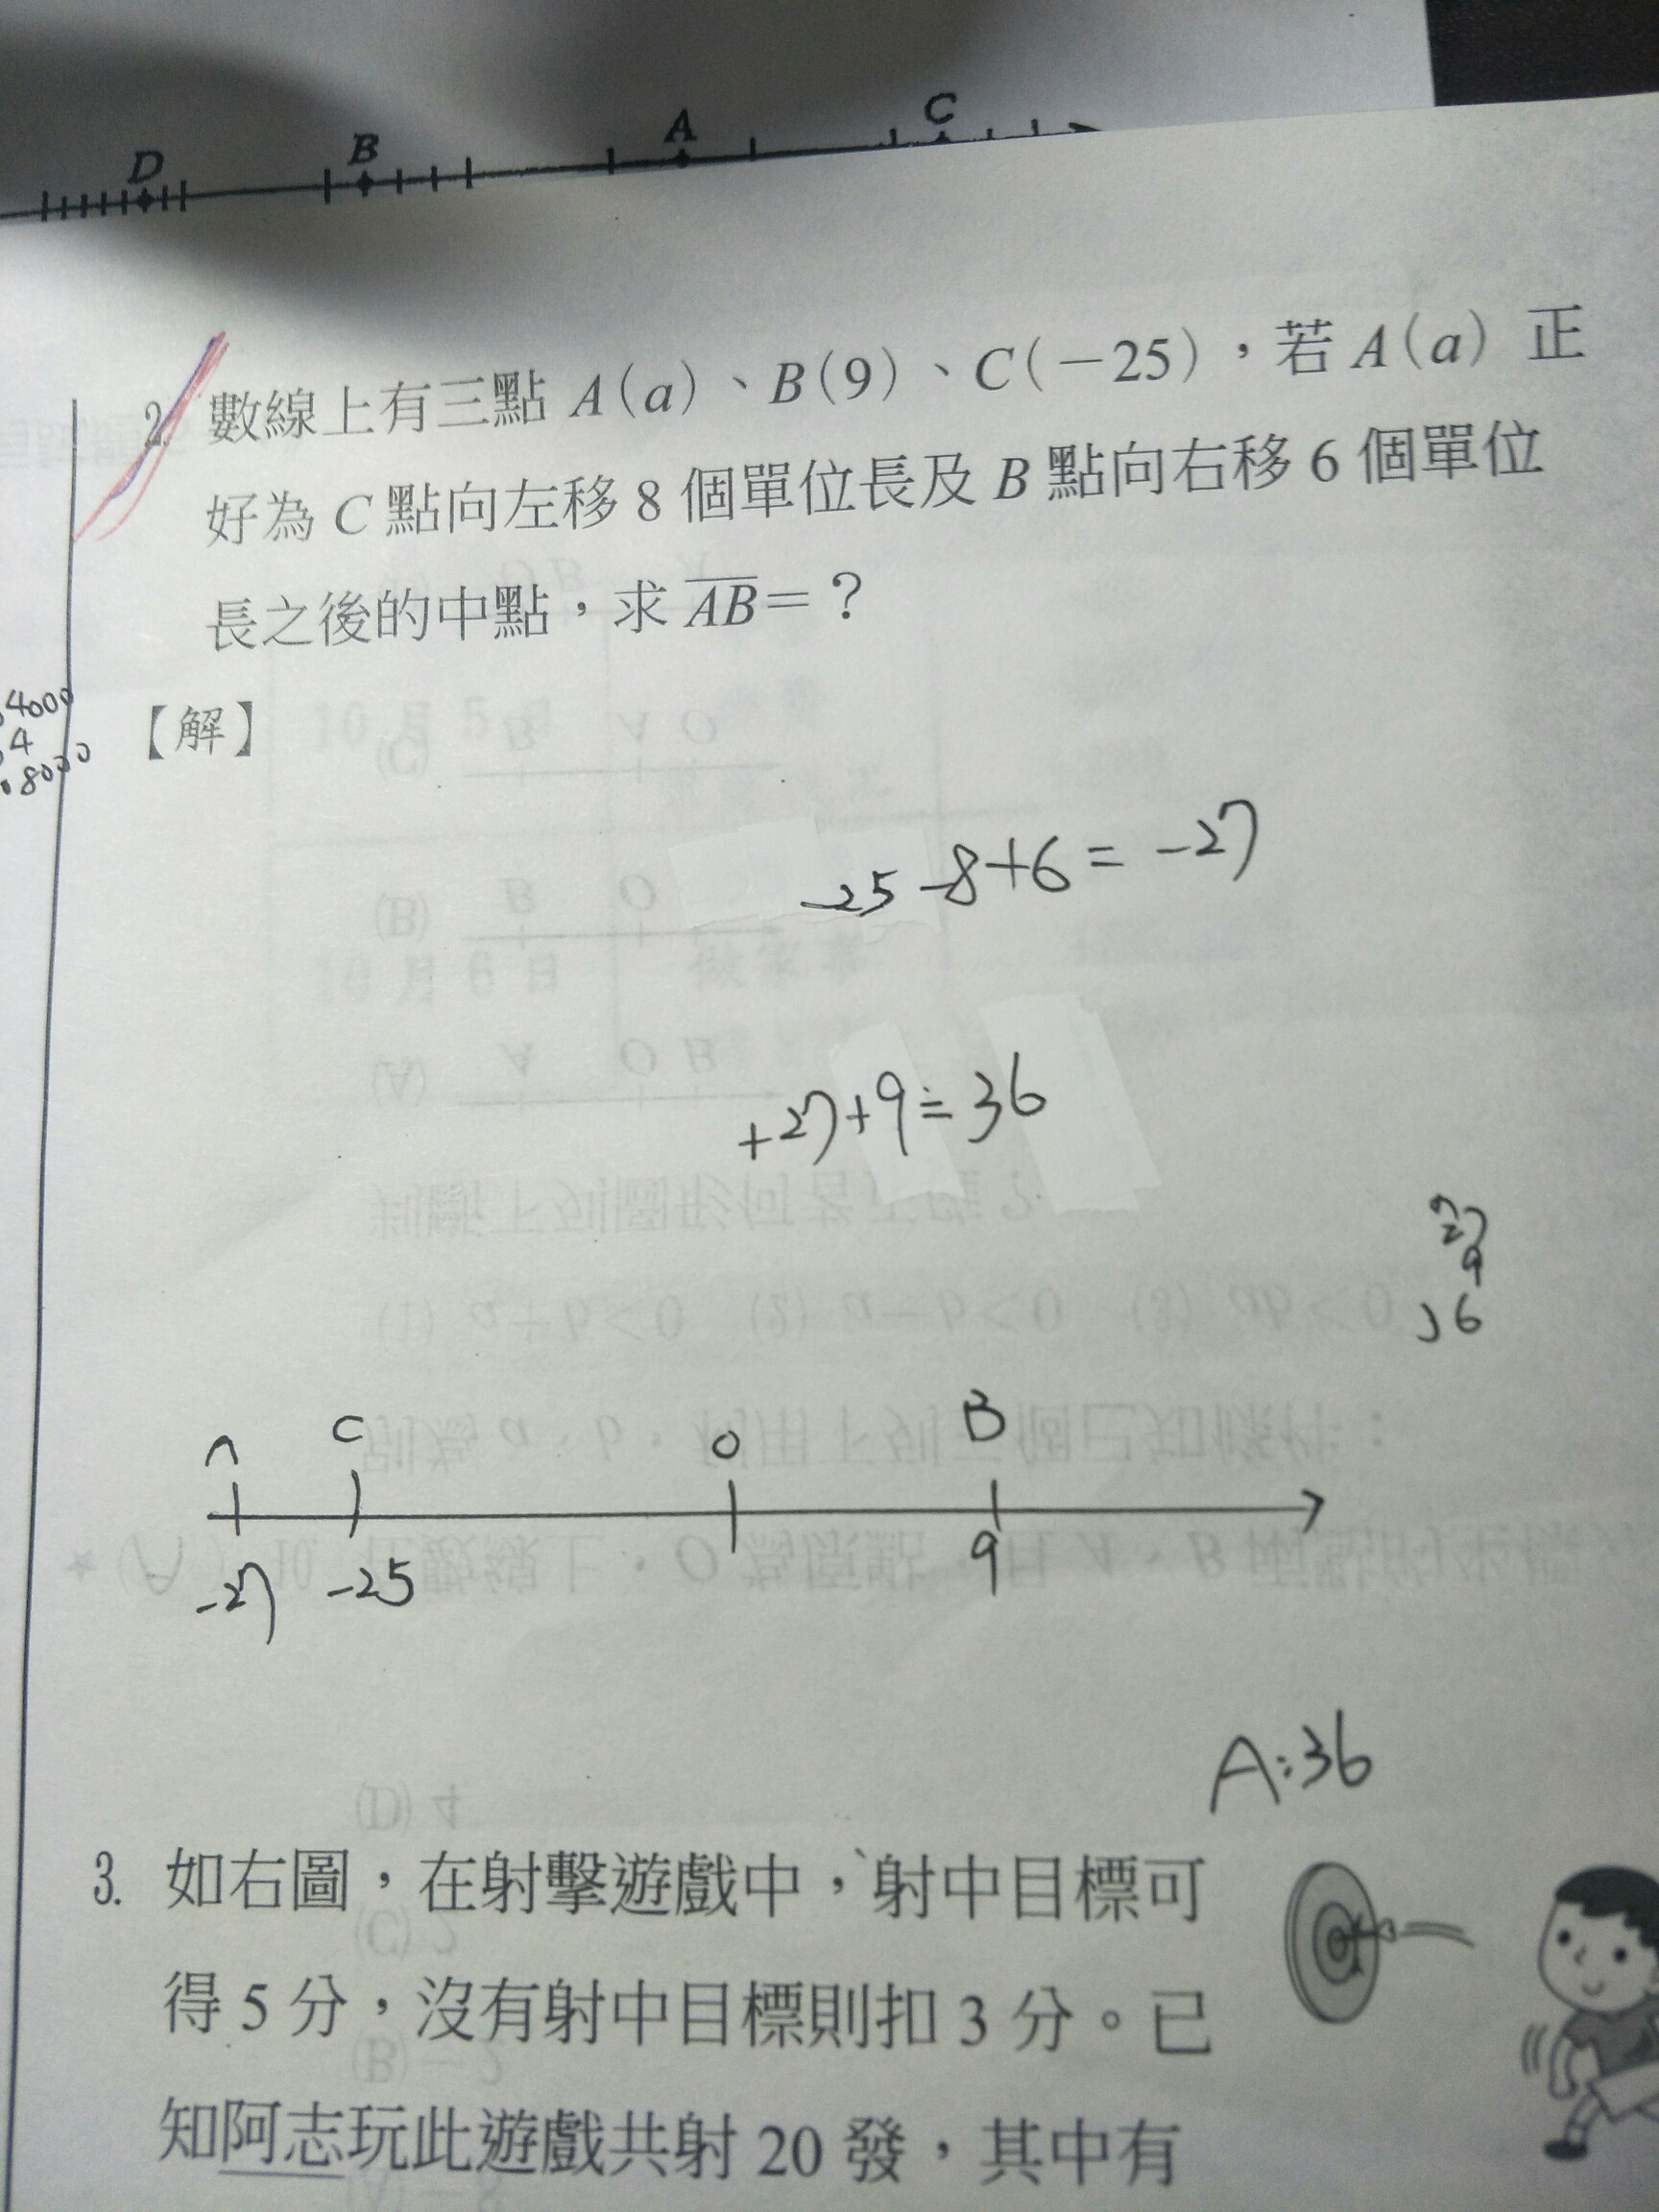 D B A C
2. 數線上有三點 A(a)、B(9)、C(-25),若 A(a) 正
好為 C 點向左移 8 個單位長及 B 點向右移 6 個單位
長之後的中點,求 AB=?
4000
4
.8000
【解】
-25-8+6=-27
+27+9=36
27
9
36
A C O B
-27 -25 9
A:36
3. 如右圖,在射擊遊戲中,射中目標可
得 5 分,沒有射中目標則扣 3 分。已
知阿志玩此遊戲共射 20 發,其中有